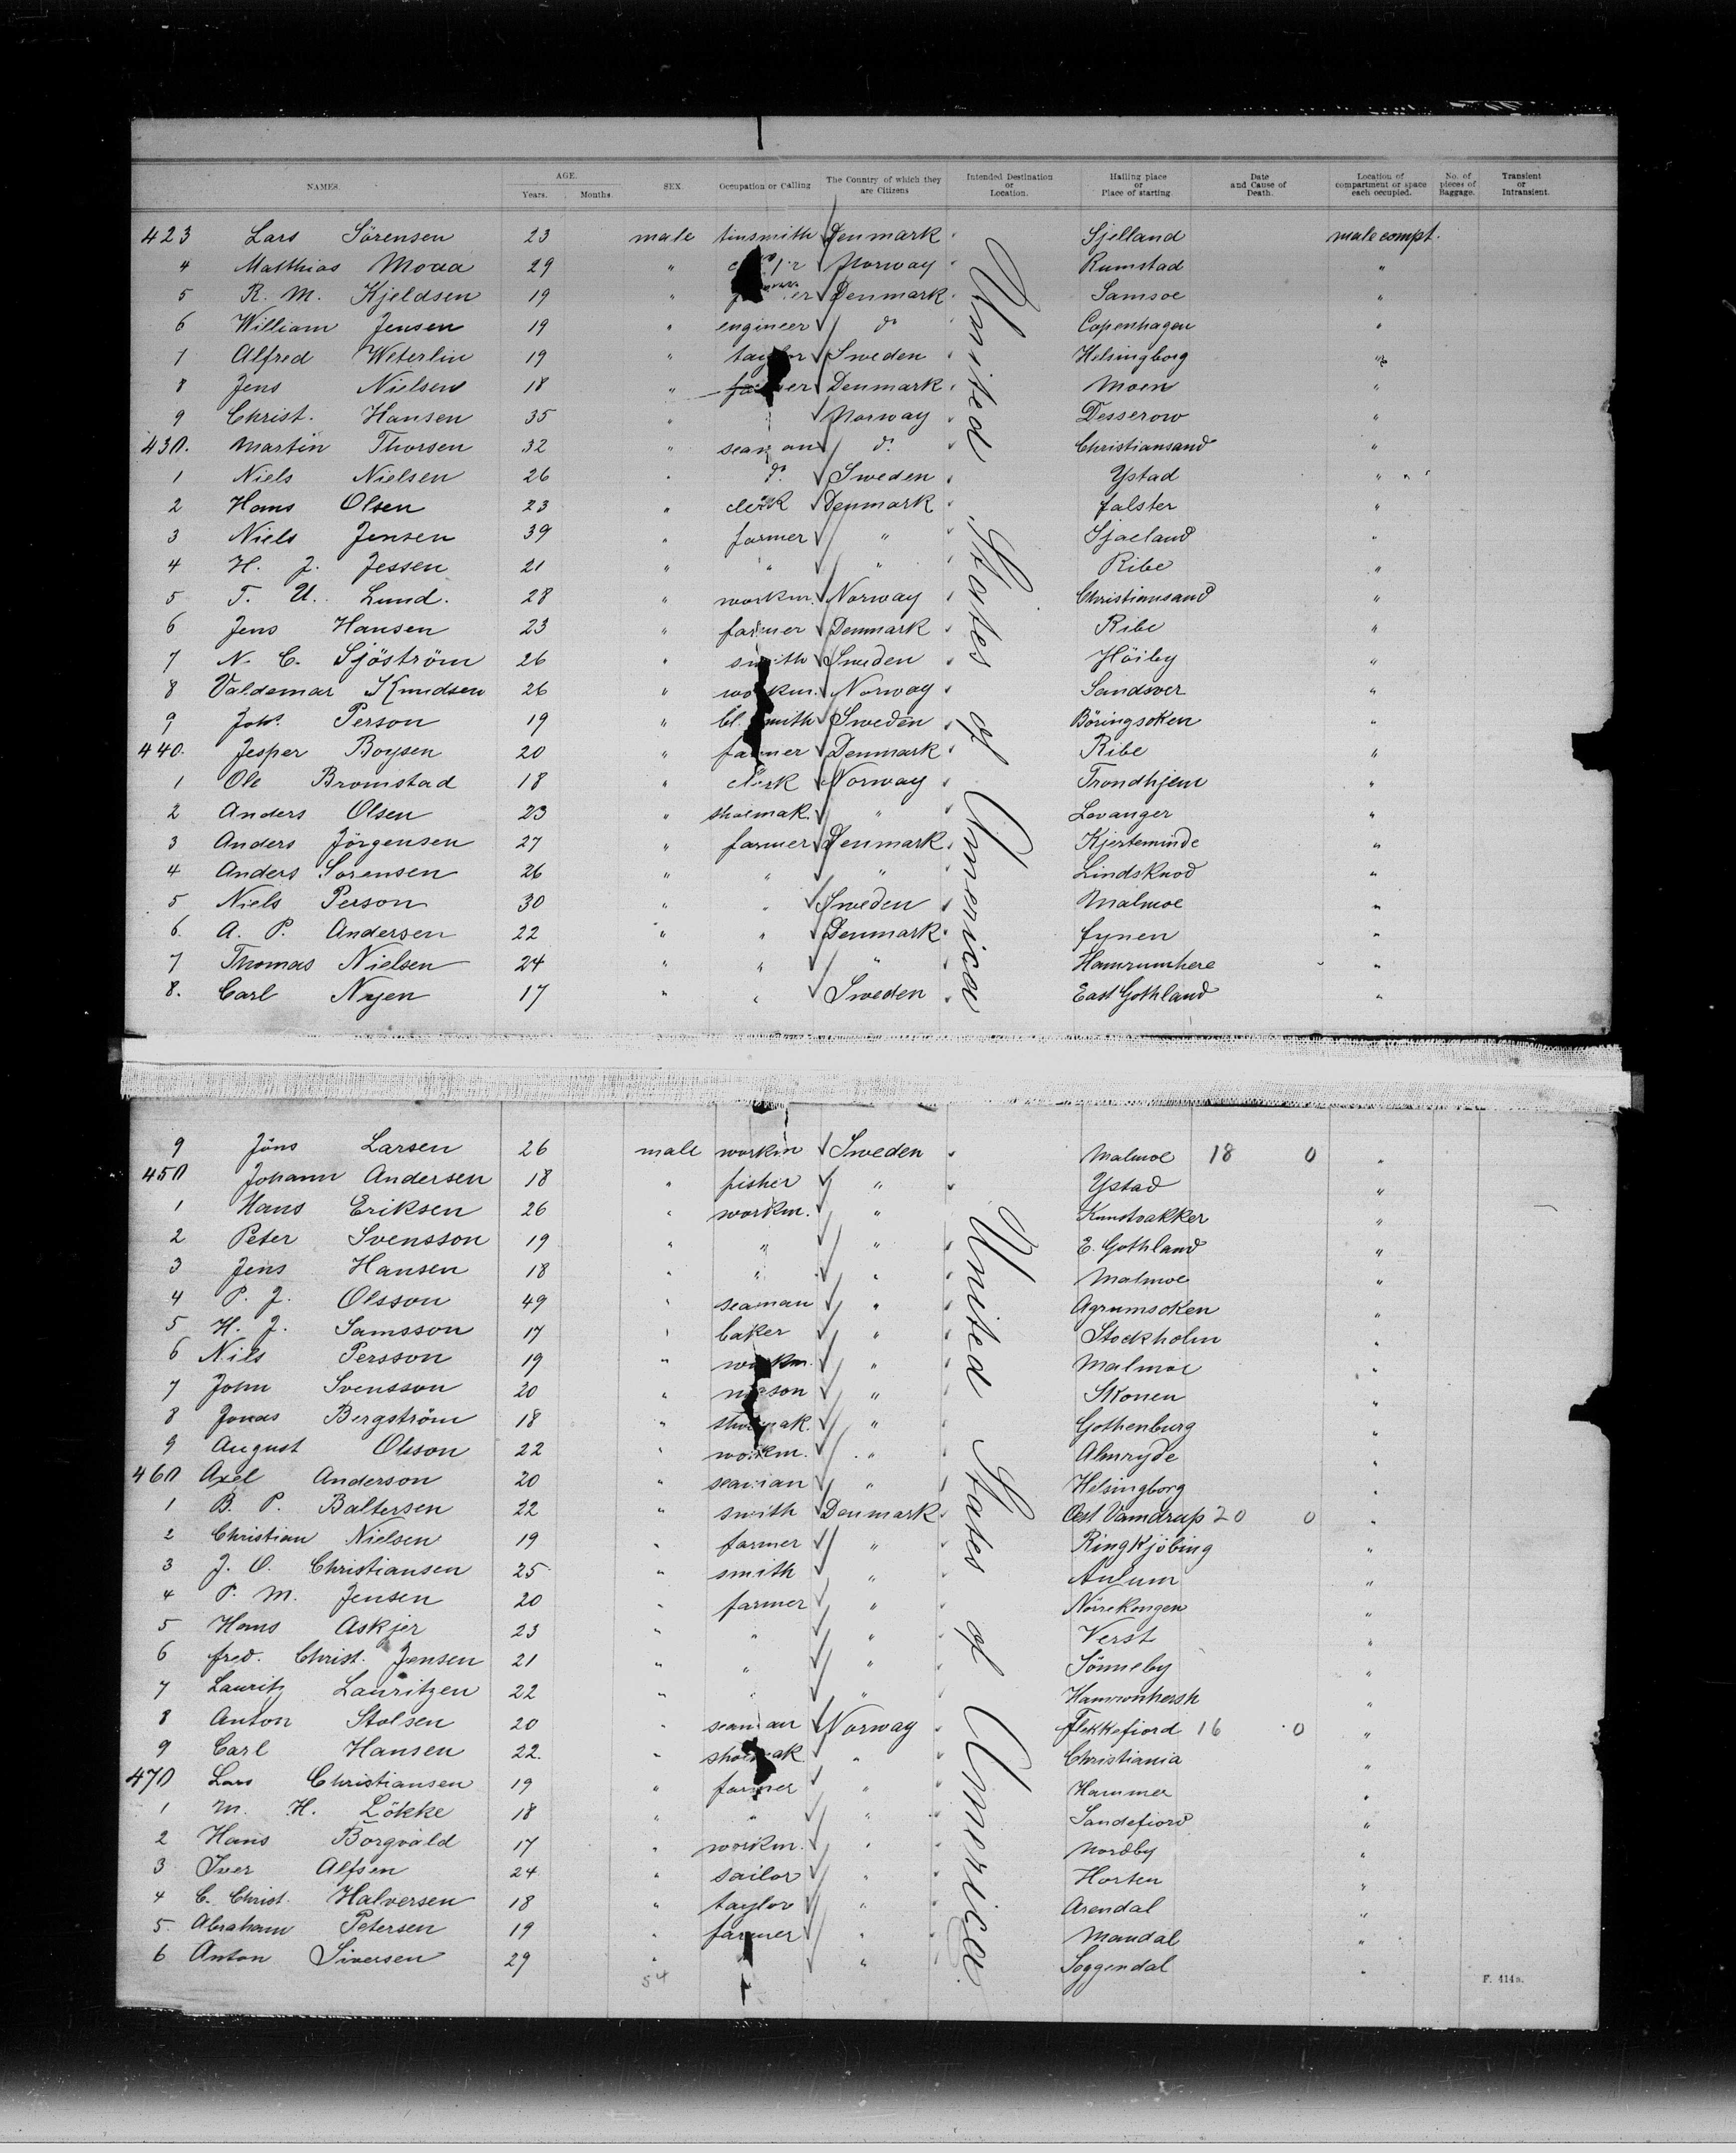 NAMES. AGE. Years. Months. SEX. Occupation or Calling The Country of which they are Citizens Intended Destination or Location. Hailing place or Place of starting. Date and Cause of Death. Location of compartment or space each occupied. No. of pieces of Baggage. Transient or Intransient.
423 Lars Sörensen 23 male tinsmith Denmark Sjelland male compt.
4 Matthias Moaa 29 " Norway Rumstad "
5 R. M. Kjeldsen 19 " Denmark Samsoe "
6 William Jensen 19 " engineer do Copenhagen "
7 Alfred Weterlin 19 " taylor Sweden Helsingborg "
8 Jens Nielsen 18 " farmer Denmark Moen "
9 Christ. Hansen 35 " Norway Desserow "
430. Martin Thorsen 32 " seaman do. Christiansand "
1 Niels Nielsen 26 " do. Sweden Ystad "
2 Hans Olsen 23 " clerk Denmark falster "
3 Niels Jensen 39 " farmer " Sjaeland "
4 H. J. Jessen 21 " " " Ribe "
5 T. U. Lund. 28 " workm. Norway Christiansand "
6 Jens Hansen 23 " farmer Denmark Ribe "
7 N. C. Sjöström 26 " smith Sweden Höiby "
8 Valdemar Knudsen 26 " workm. Norway Sandsver "
9 Johs. Person 19 " bl. smith Sweden Böringsoken "
440. Jesper Boysen 20 " farmer Denmark Ribe "
1 Ole Bromstad 18 " clerk Norway Trondhjem "
2 Anders Olsen 23 " shoemak. " Levanger "
3 Anders Jörgensen 27 " farmer Denmark Kjerteminde "
4 Anders Sörensen 26 " " " Lindsknod "
5 Niels Person 30 " " Sweden Malmoe "
6. A. P. Andersen 22 " " Denmark fynen "
7 Thomas Nielsen 24 " " " Hamrumhere "
8. Carl Nyen 17 " " Sweden East Gothland "
United States of America
9 Jöns Larsen 26 male workm Sweden Malmoe 18 0 "
450 Johann Andersen 18 " fisher " Ystad "
1 Hans Eriksen 26 " workm. " Kunstvakker "
2 Peter Svensson 19 " " " E. Gothland "
3 Jens Hansen 18 " " " Malmoe "
4 P. J. Olsson 49 " seaman " Agrumsoken "
5 H. J. Samsson 17 " baker " Stockholm "
6 Nils Persson 19 " workm. " Malmoe "
7 John Svensson 20 " mason " Skonen "
8 Jonas Bergström 18 " shoemak. " Gothenburg "
9 August Olsson 22 " workm. " Almryde "
460 Axel Anderson 20 " seaman " Helsingborg "
1 B. P. Baltersen 22 " smith Denmark Oest Vamdrup 20 0 "
2 Christian Nielsen 19 " farmer " Ringkjöbing "
3 J. O. Christiansen 25 " smith " Aulum "
4 P. M. Jensen 20 " farmer " Nörrekongen "
5 Hans Askjer 23 " " " Verst "
6 fred. Christ. Jensen 21 " " " Sönneby "
7 Lauritz Lauritzen 22 " " " Hamronhersh "
8 Anton Stolsen 20 " seaman Norway Flekkefiord 16 0 "
9 Carl Hansen 22. " shoemak " Christiania "
470 Lars Christiansen 19 " farmer " Hammer "
1 M. H. Lökke 18 " " " Sandefiord "
2 Hans Borgvald 17 " workm. " Nordby "
3 Iver Alfsen 24 " sailor " Horten "
4 C. Christ. Halversen 18 " taylor " Arendal "
5. Abraham Petersen 19 " farmer " Mandal "
6 Anton Siversen 29 " " Soggendal "
United States of America.
54
F. 414a.